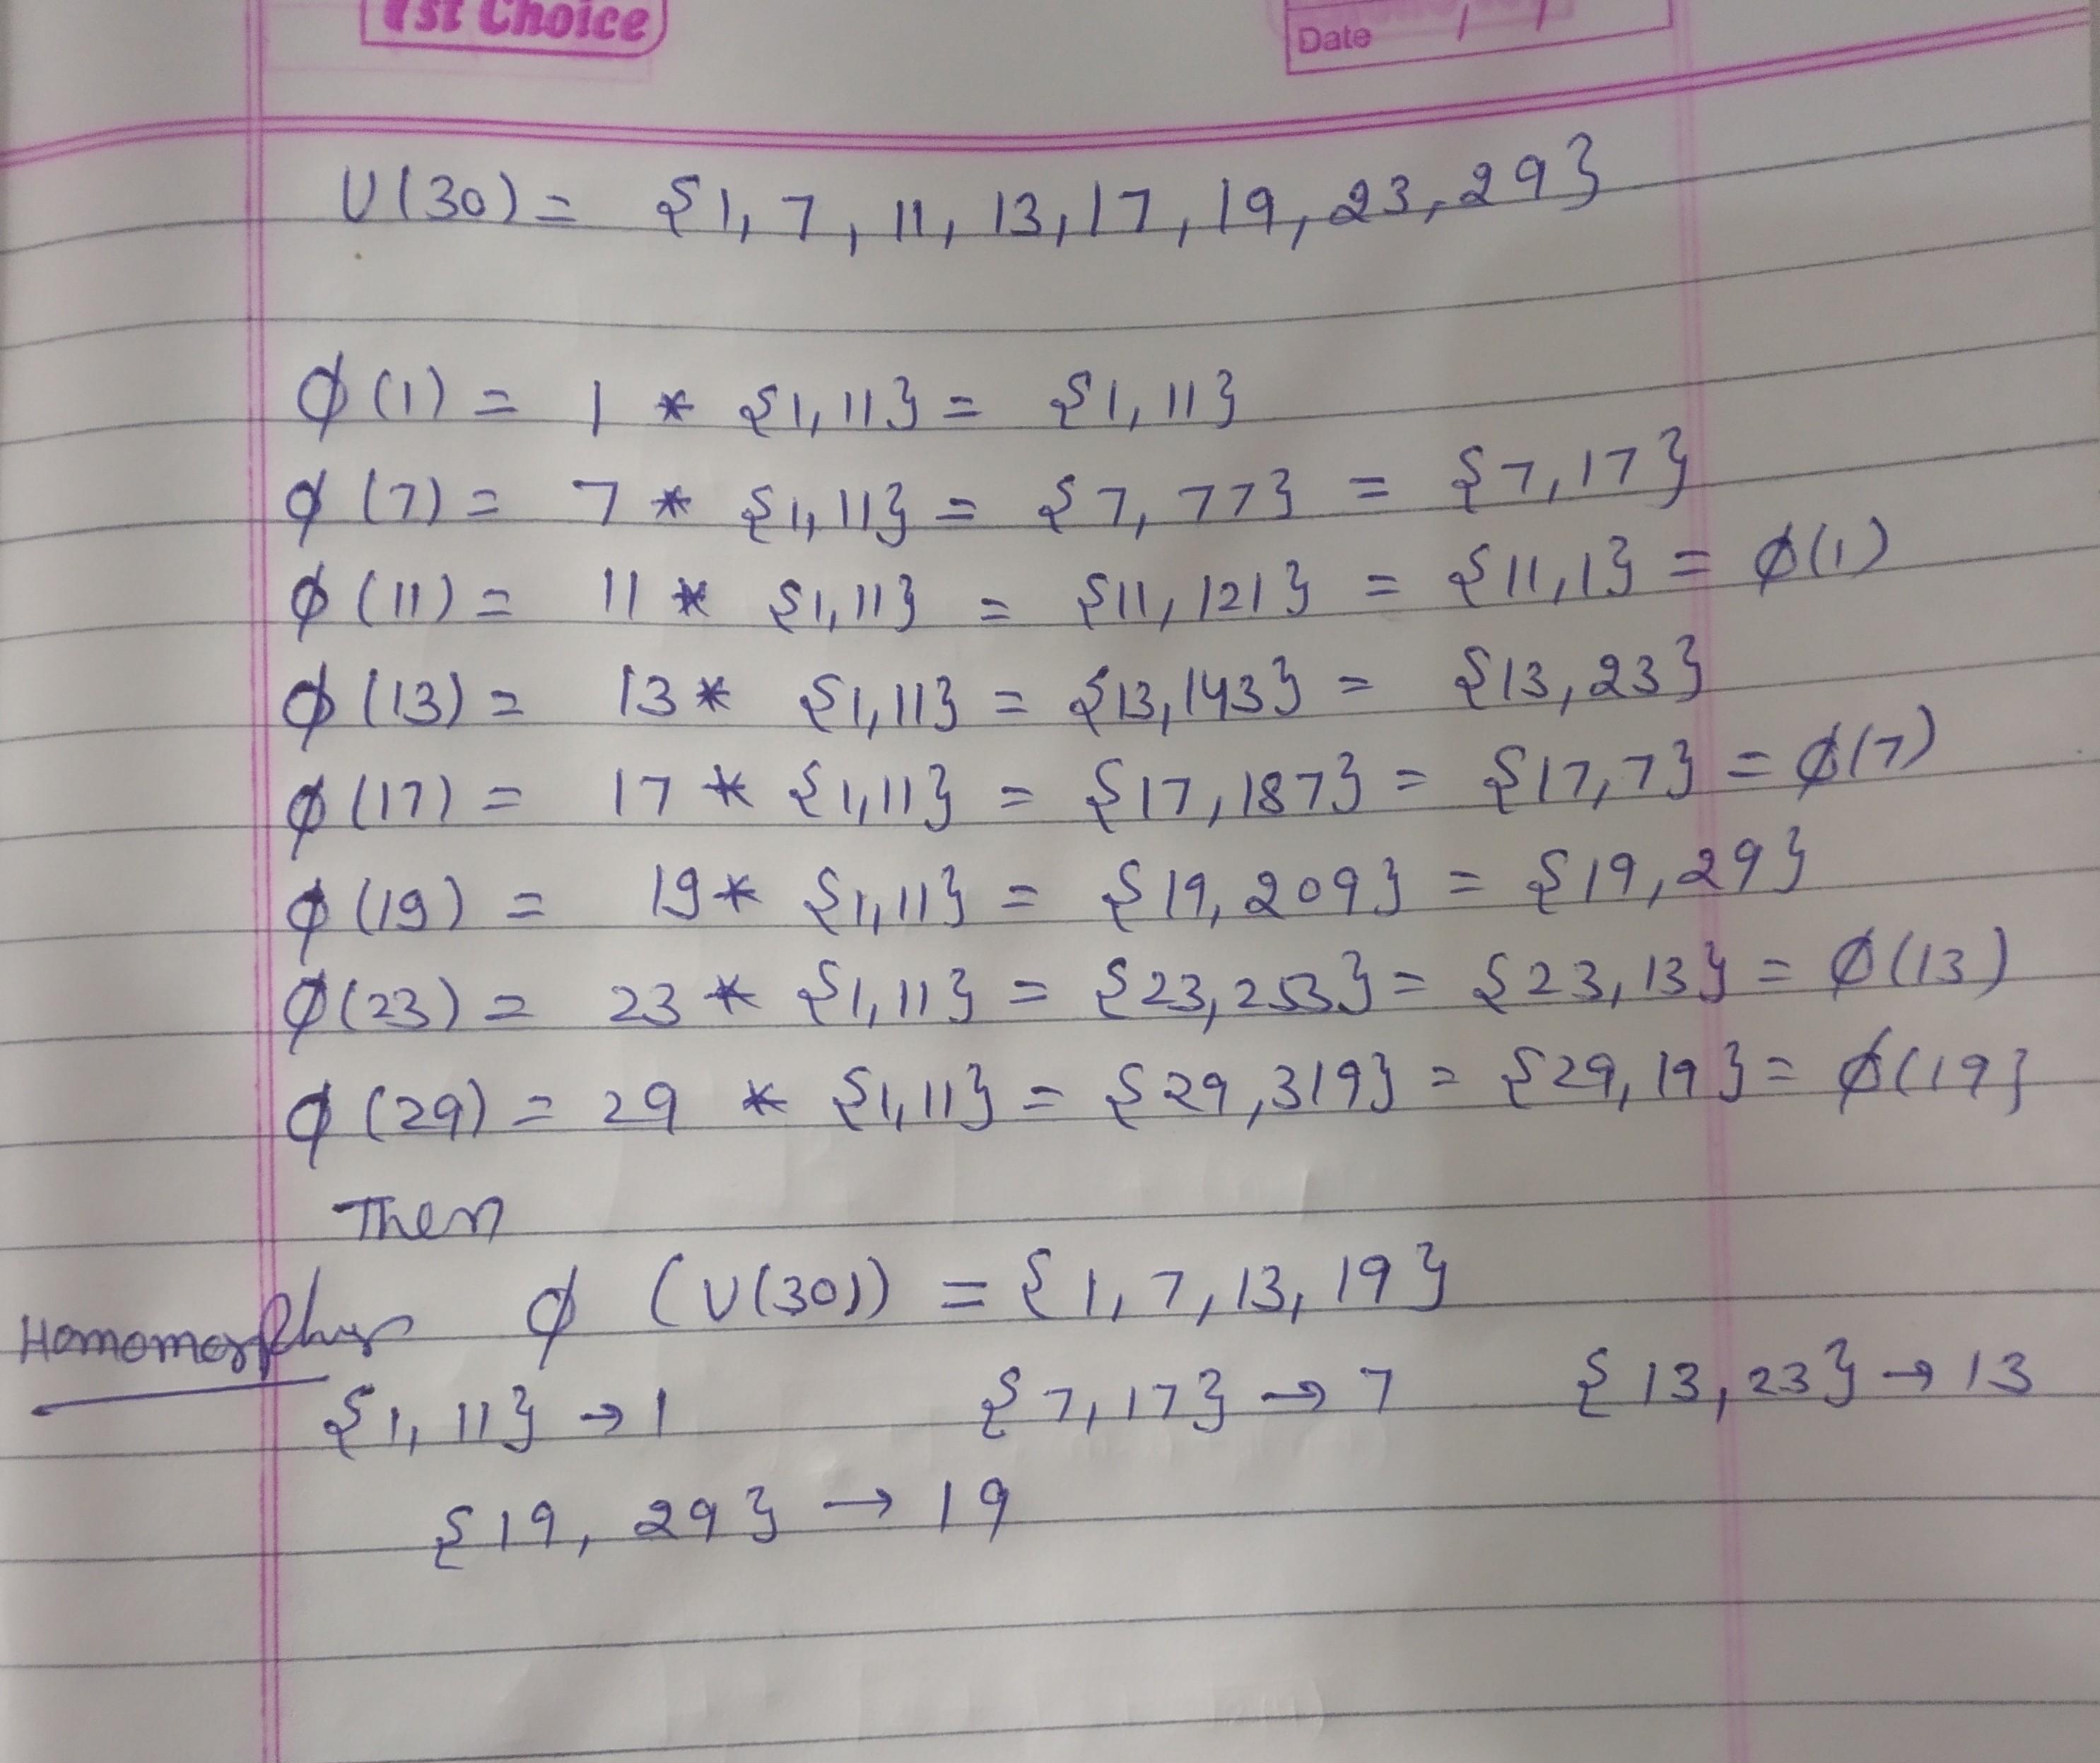 1st Choice
Date / /
U(30) = {1, 7, 11, 13, 17, 19, 23, 29}
ϕ(1) = 1 * {1, 11} = {1, 11}
ϕ(7) = 7 * {1, 11} = {7, 77} = {7, 17}
ϕ(11) = 11 * {1, 11} = {11, 121} = {11, 1} = ϕ(1)
ϕ(13) = 13 * {1, 11} = {13, 143} = {13, 23}
ϕ(17) = 17 * {1, 11} = {17, 187} = {17, 7} = ϕ(7)
ϕ(19) = 19 * {1, 11} = {19, 209} = {19, 29}
ϕ(23) = 23 * {1, 11} = {23, 253} = {23, 13} = ϕ(13)
ϕ(29) = 29 * {1, 11} = {29, 319} = {29, 19} = ϕ(19}
Then
ϕ (U(30)) = {1, 7, 13, 19}
{1, 11} → 1 {7, 17} → 7 {13, 23} → 13
{19, 29} → 19